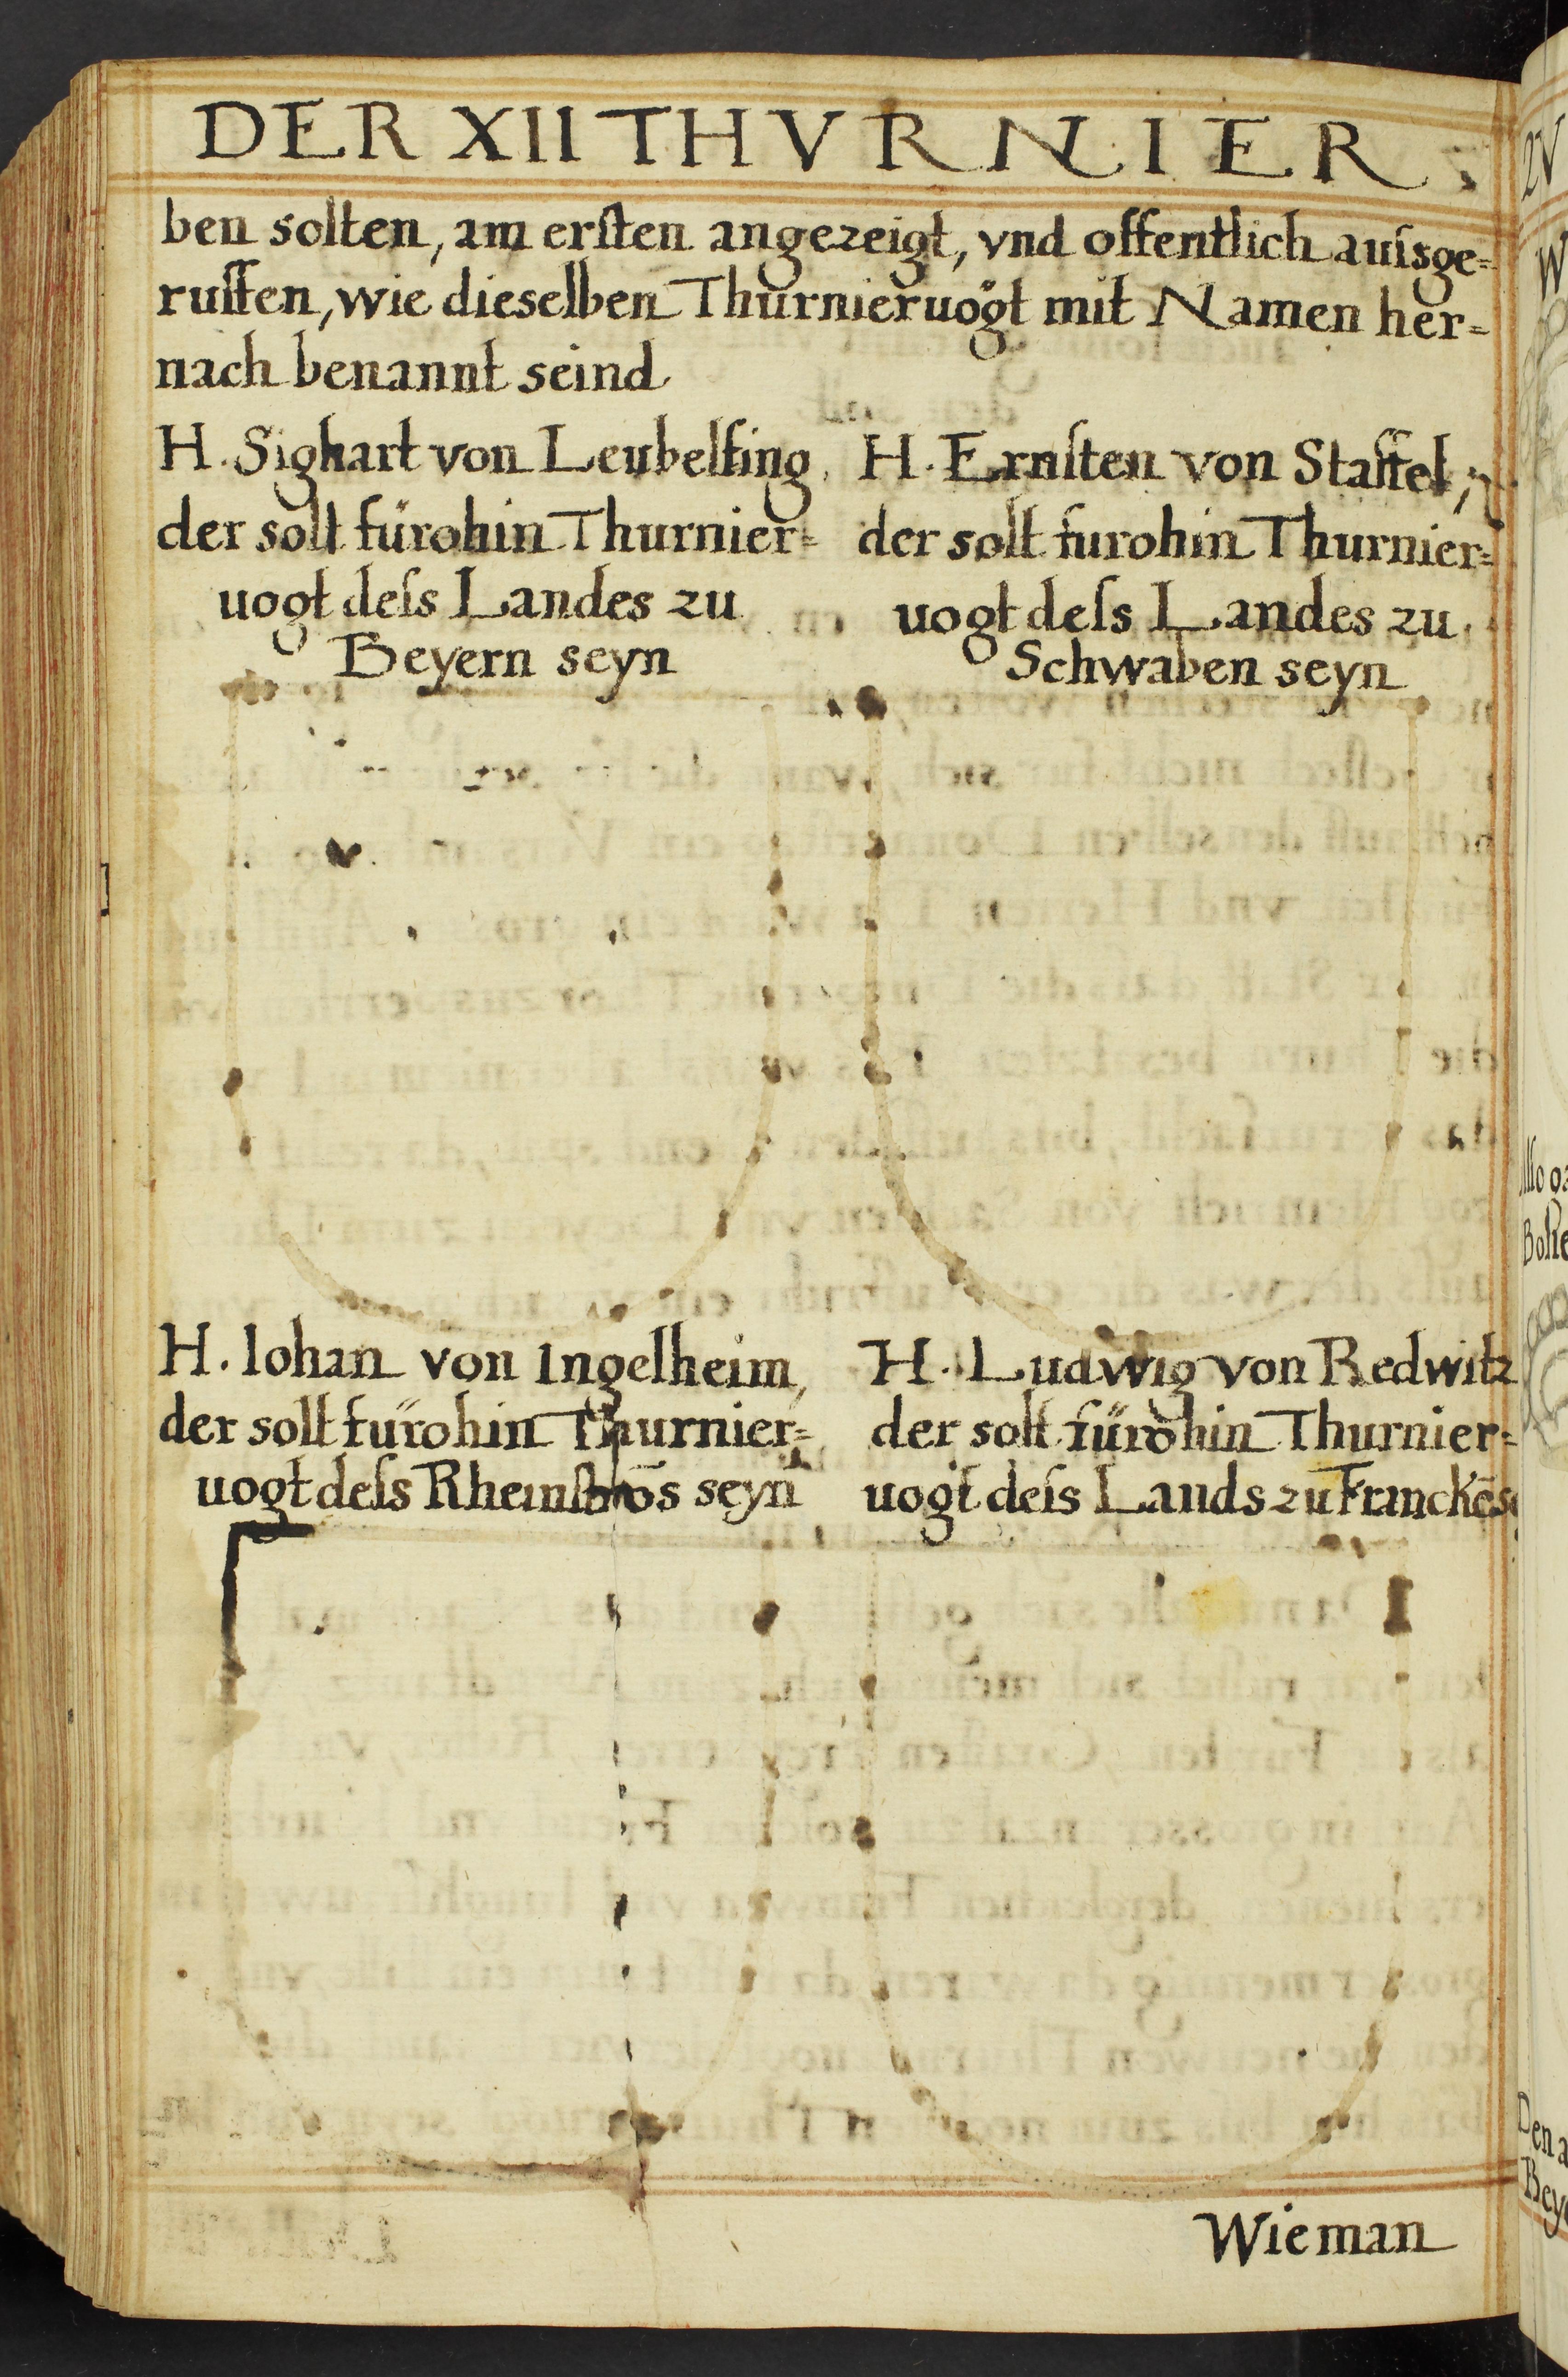 DER XII THVRNIER
ben solten, am erſten angezeigt, vnd offentlich auſsge=
ruffen, wie dieselben Thurnieruögt mit Namen her=
nach benannt seind
H. Sighart von Leubelfing
der soll fürohin Thurnier=
uogt deſs Landes zu
Beyern seyn
H. Ernſten von Staffel,
der soll furohin Thurnier=
uogt deſs Landes zu
Schwaben seyn
H. Iohan von Ingelheim,
der soll fürohin Thurnier=
uogt deſs Rheinſtrōs seyn
H. Ludwig von Redwitz
der soll fürohin Thurnier=
uogt deſs Lands zu Franckēs
Wie man